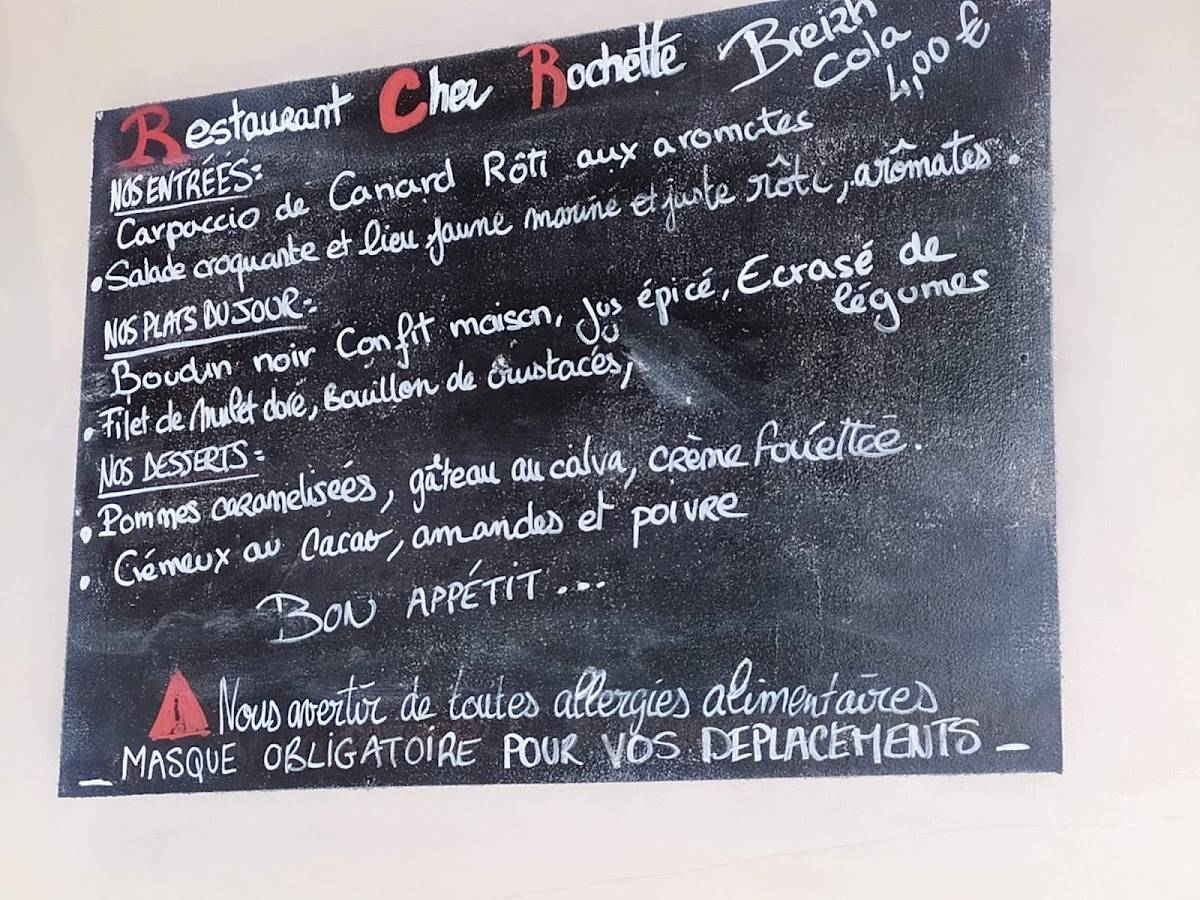 Restaurant Chez Rochette
Breizh
Cola
4,00 €
NOS ENTRÉES:
Carpaccio de Canard Rôti aux aromates
• Salade croquante et lieu jaune mariné et juste rôti, arômates.
NOS PLATS DU JOUR:
Boudin noir Confit maison, Jus épicé, Ecrasé de
légumes
• Filet de Mulet doré, Bouillon de crustacés,
NOS DESSERTS:
• Pommes caramelisées, gâteau au calva, crème fouettée.
• Crémeux au Cacao, amandes et poivre
BON APPÉTIT...
! Nous avertir de toutes allergies alimentaires
_ MASQUE OBLIGATOIRE POUR VOS DEPLACEMENTS _